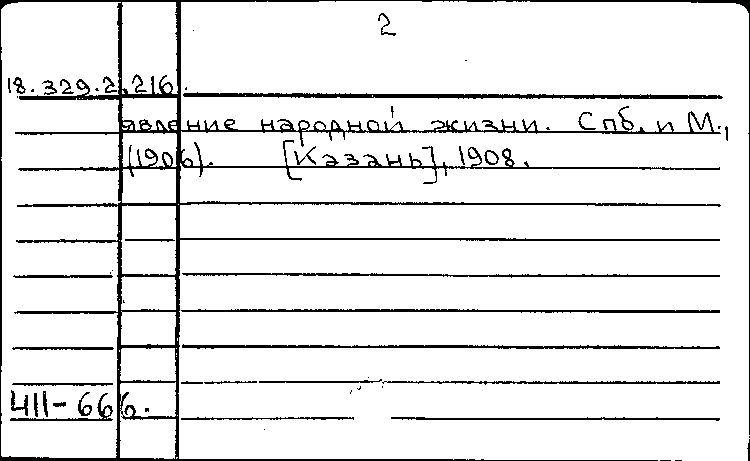 2
18.329.2.216.
явление народной жизни. Спб. и М.,
(1906). [Казань], 1908.
411-666.